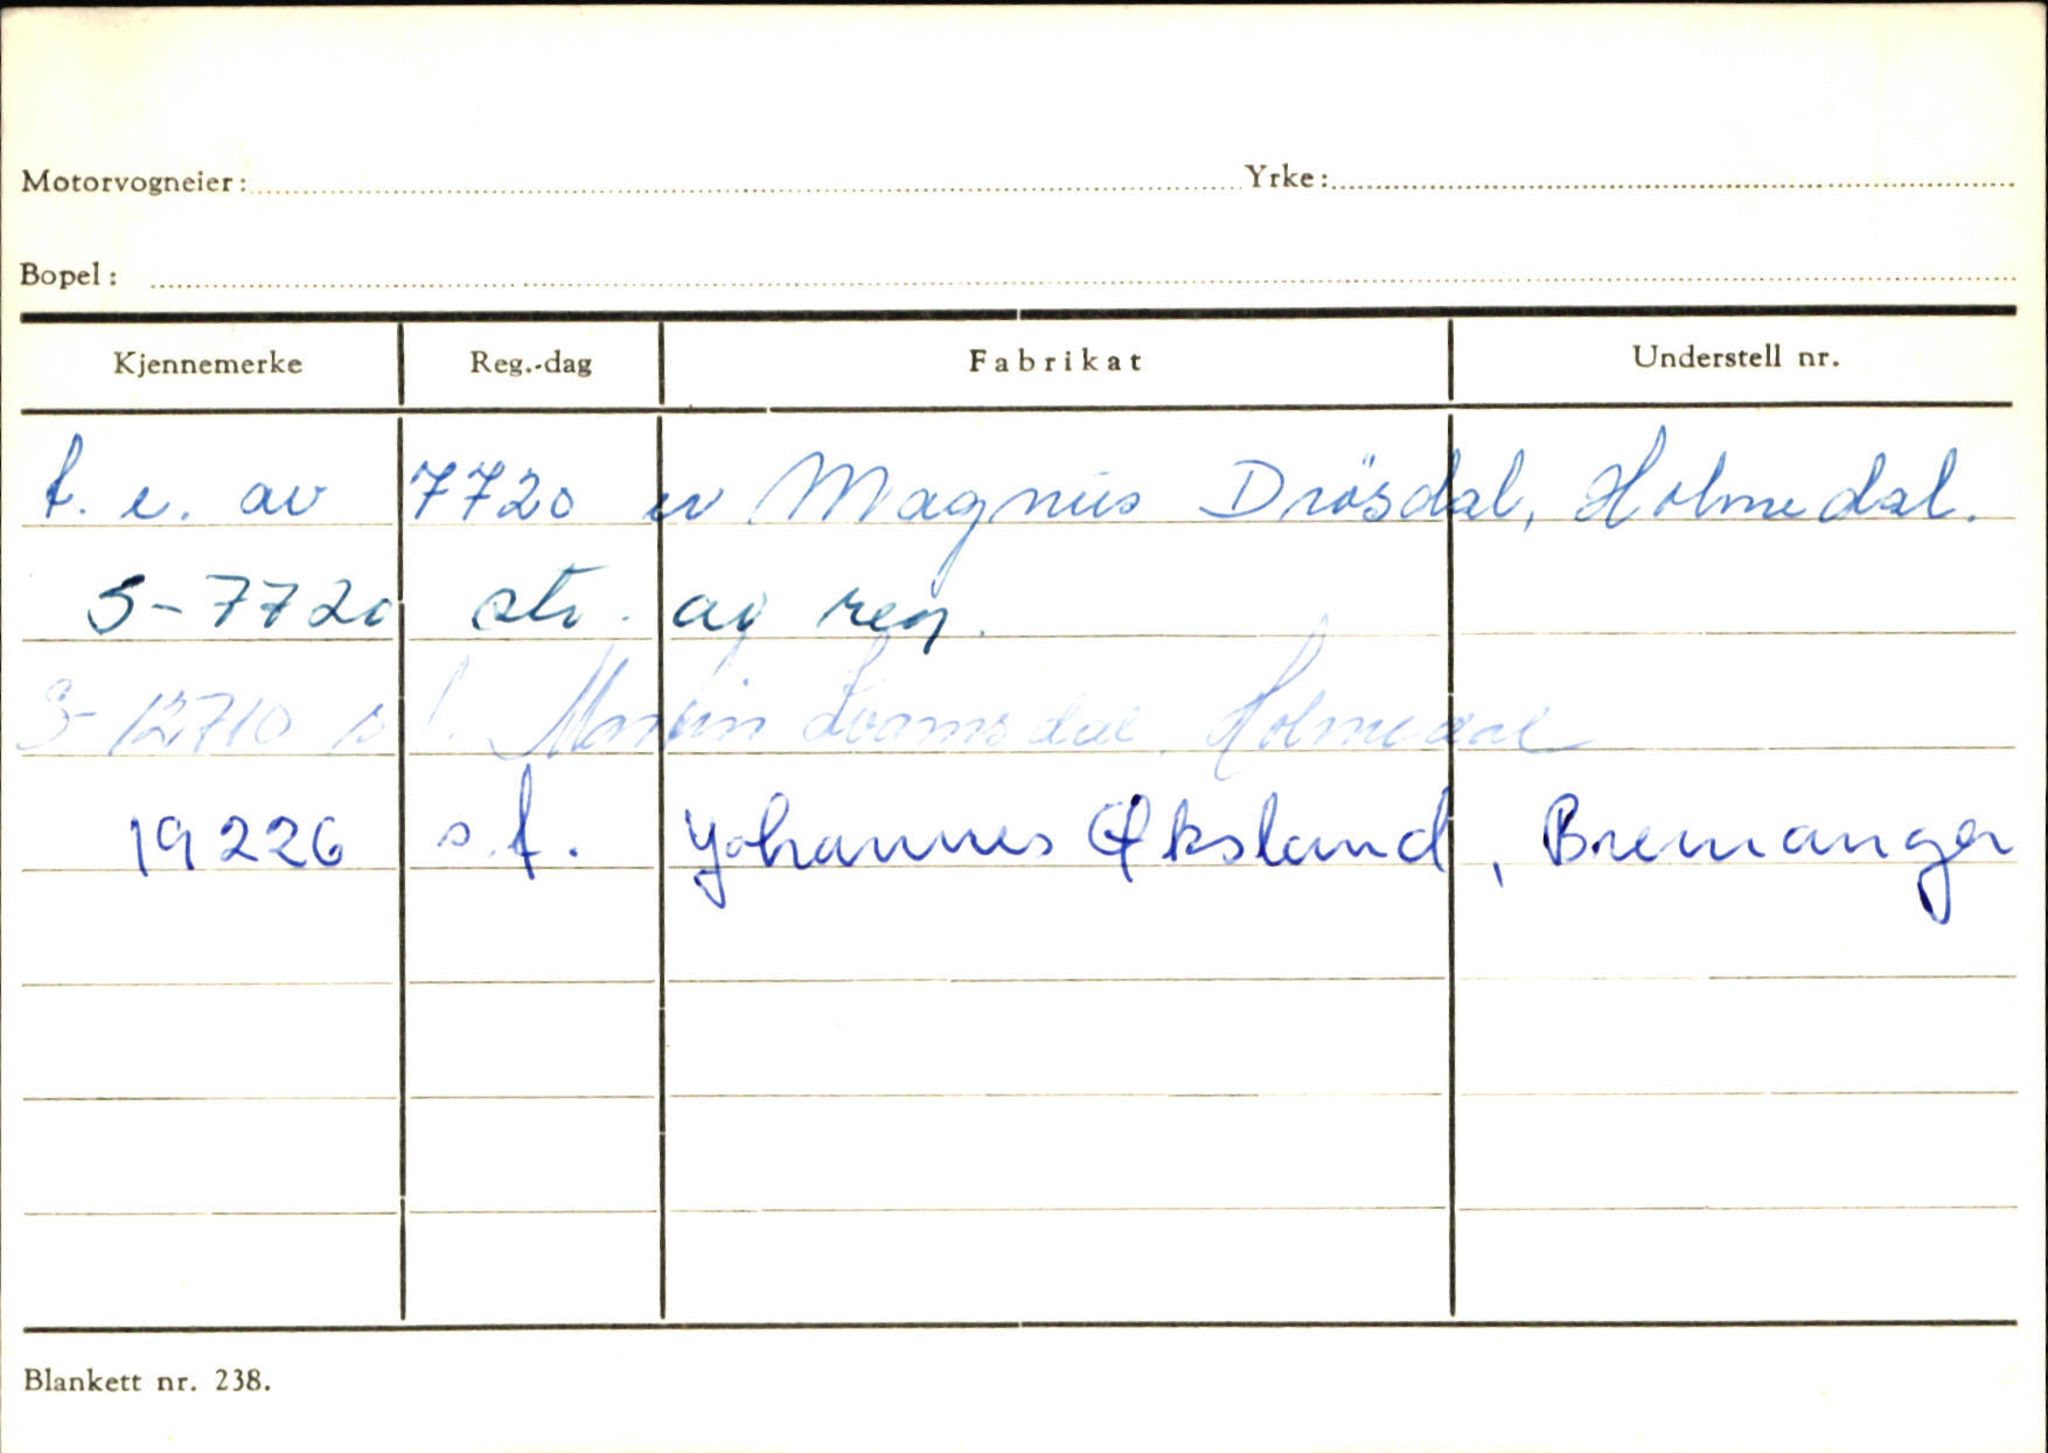 Motorvogneier: Yrke:
Bopel:
Kjennemerke Reg.-dag Fabrikat Understell nr.
f. e. av 7720 er Magnus Drösdal, Holmedal.
S-7720 str. av reg.
S-12710 s f. Martin Holmedal
19226 s.f. Johannes Øksland, Bremanger
Blankett nr. 238.